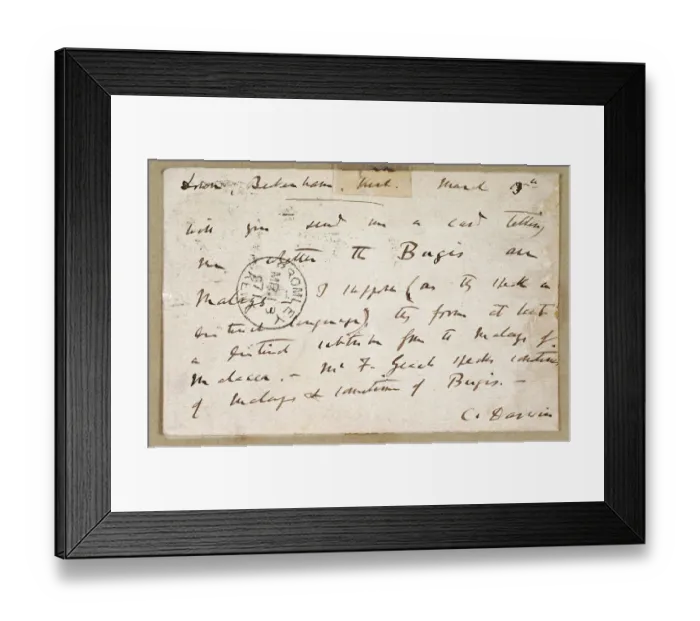 Down, Beckenham, Kent. March 3
Will you send me a card telling
me whether the Bugis are
Malays I suppose (as they speak a
distinct language) they form at least
a distinct subtribe from the Malays of
Malacca. — Mr F. Geach speaks sometimes
of Malays & sometimes of Bugis. —
C. Darwin
BROMLEY
KENT